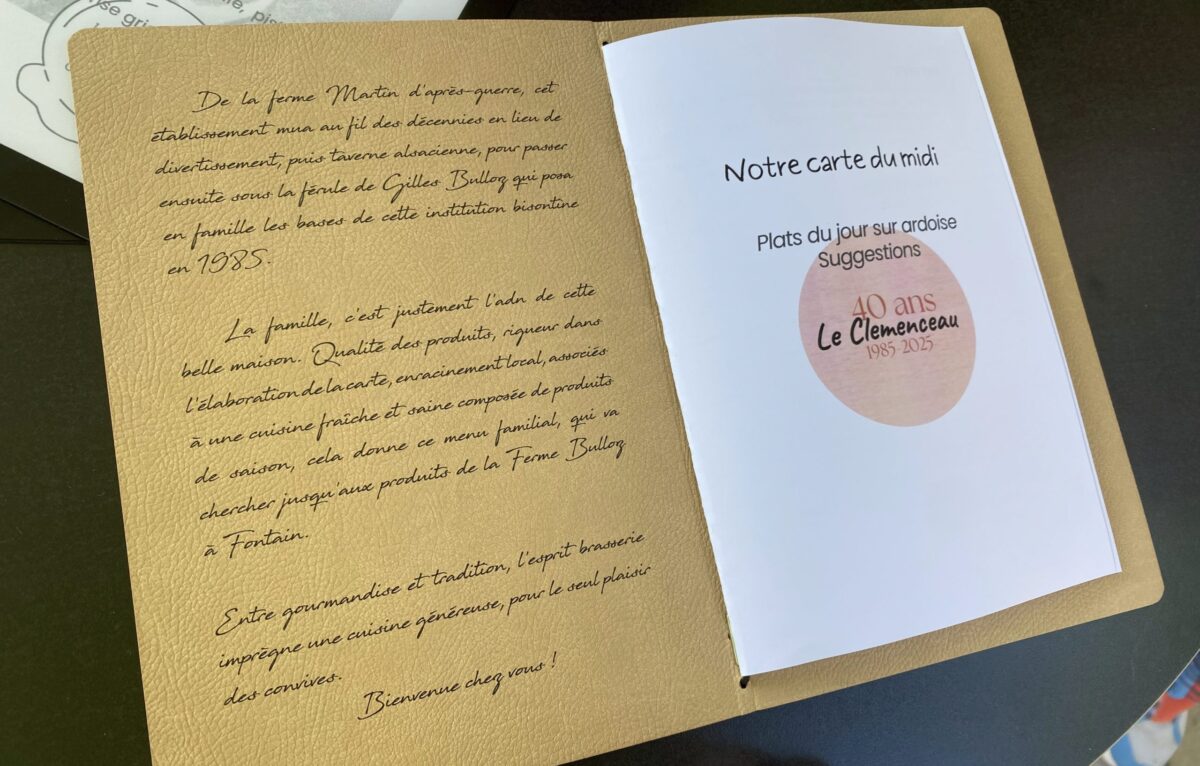 De la ferme Martin d'après-guerre, cet
établissement mua au fil des décennies en lieu de
divertissement, puis taverne alsacienne, pour passer
ensuite sous la férule de Gilles Bulloz qui posa
en famille les bases de cette institution bisontine
en 1985.
La famille, c'est justement l'adn de cette
belle maison. Qualité des produits, rigueur dans
l'élaboration de la carte, enracinement local, associés
à une cuisine fraîche et saine composée de produits
de saison, cela donne ce menu familial, qui va
chercher jusqu'aux produits de la Ferme Bulloz
à Fontain.
Entre gourmandise et tradition, l'esprit brasserie
imprègne une cuisine généreuse, pour le seul plaisir
des convives.
Bienvenue chez vous !
Notre carte du midi
Plats du jour sur ardoise
Suggestions
40 ans
Le Clemenceau
1985-2025